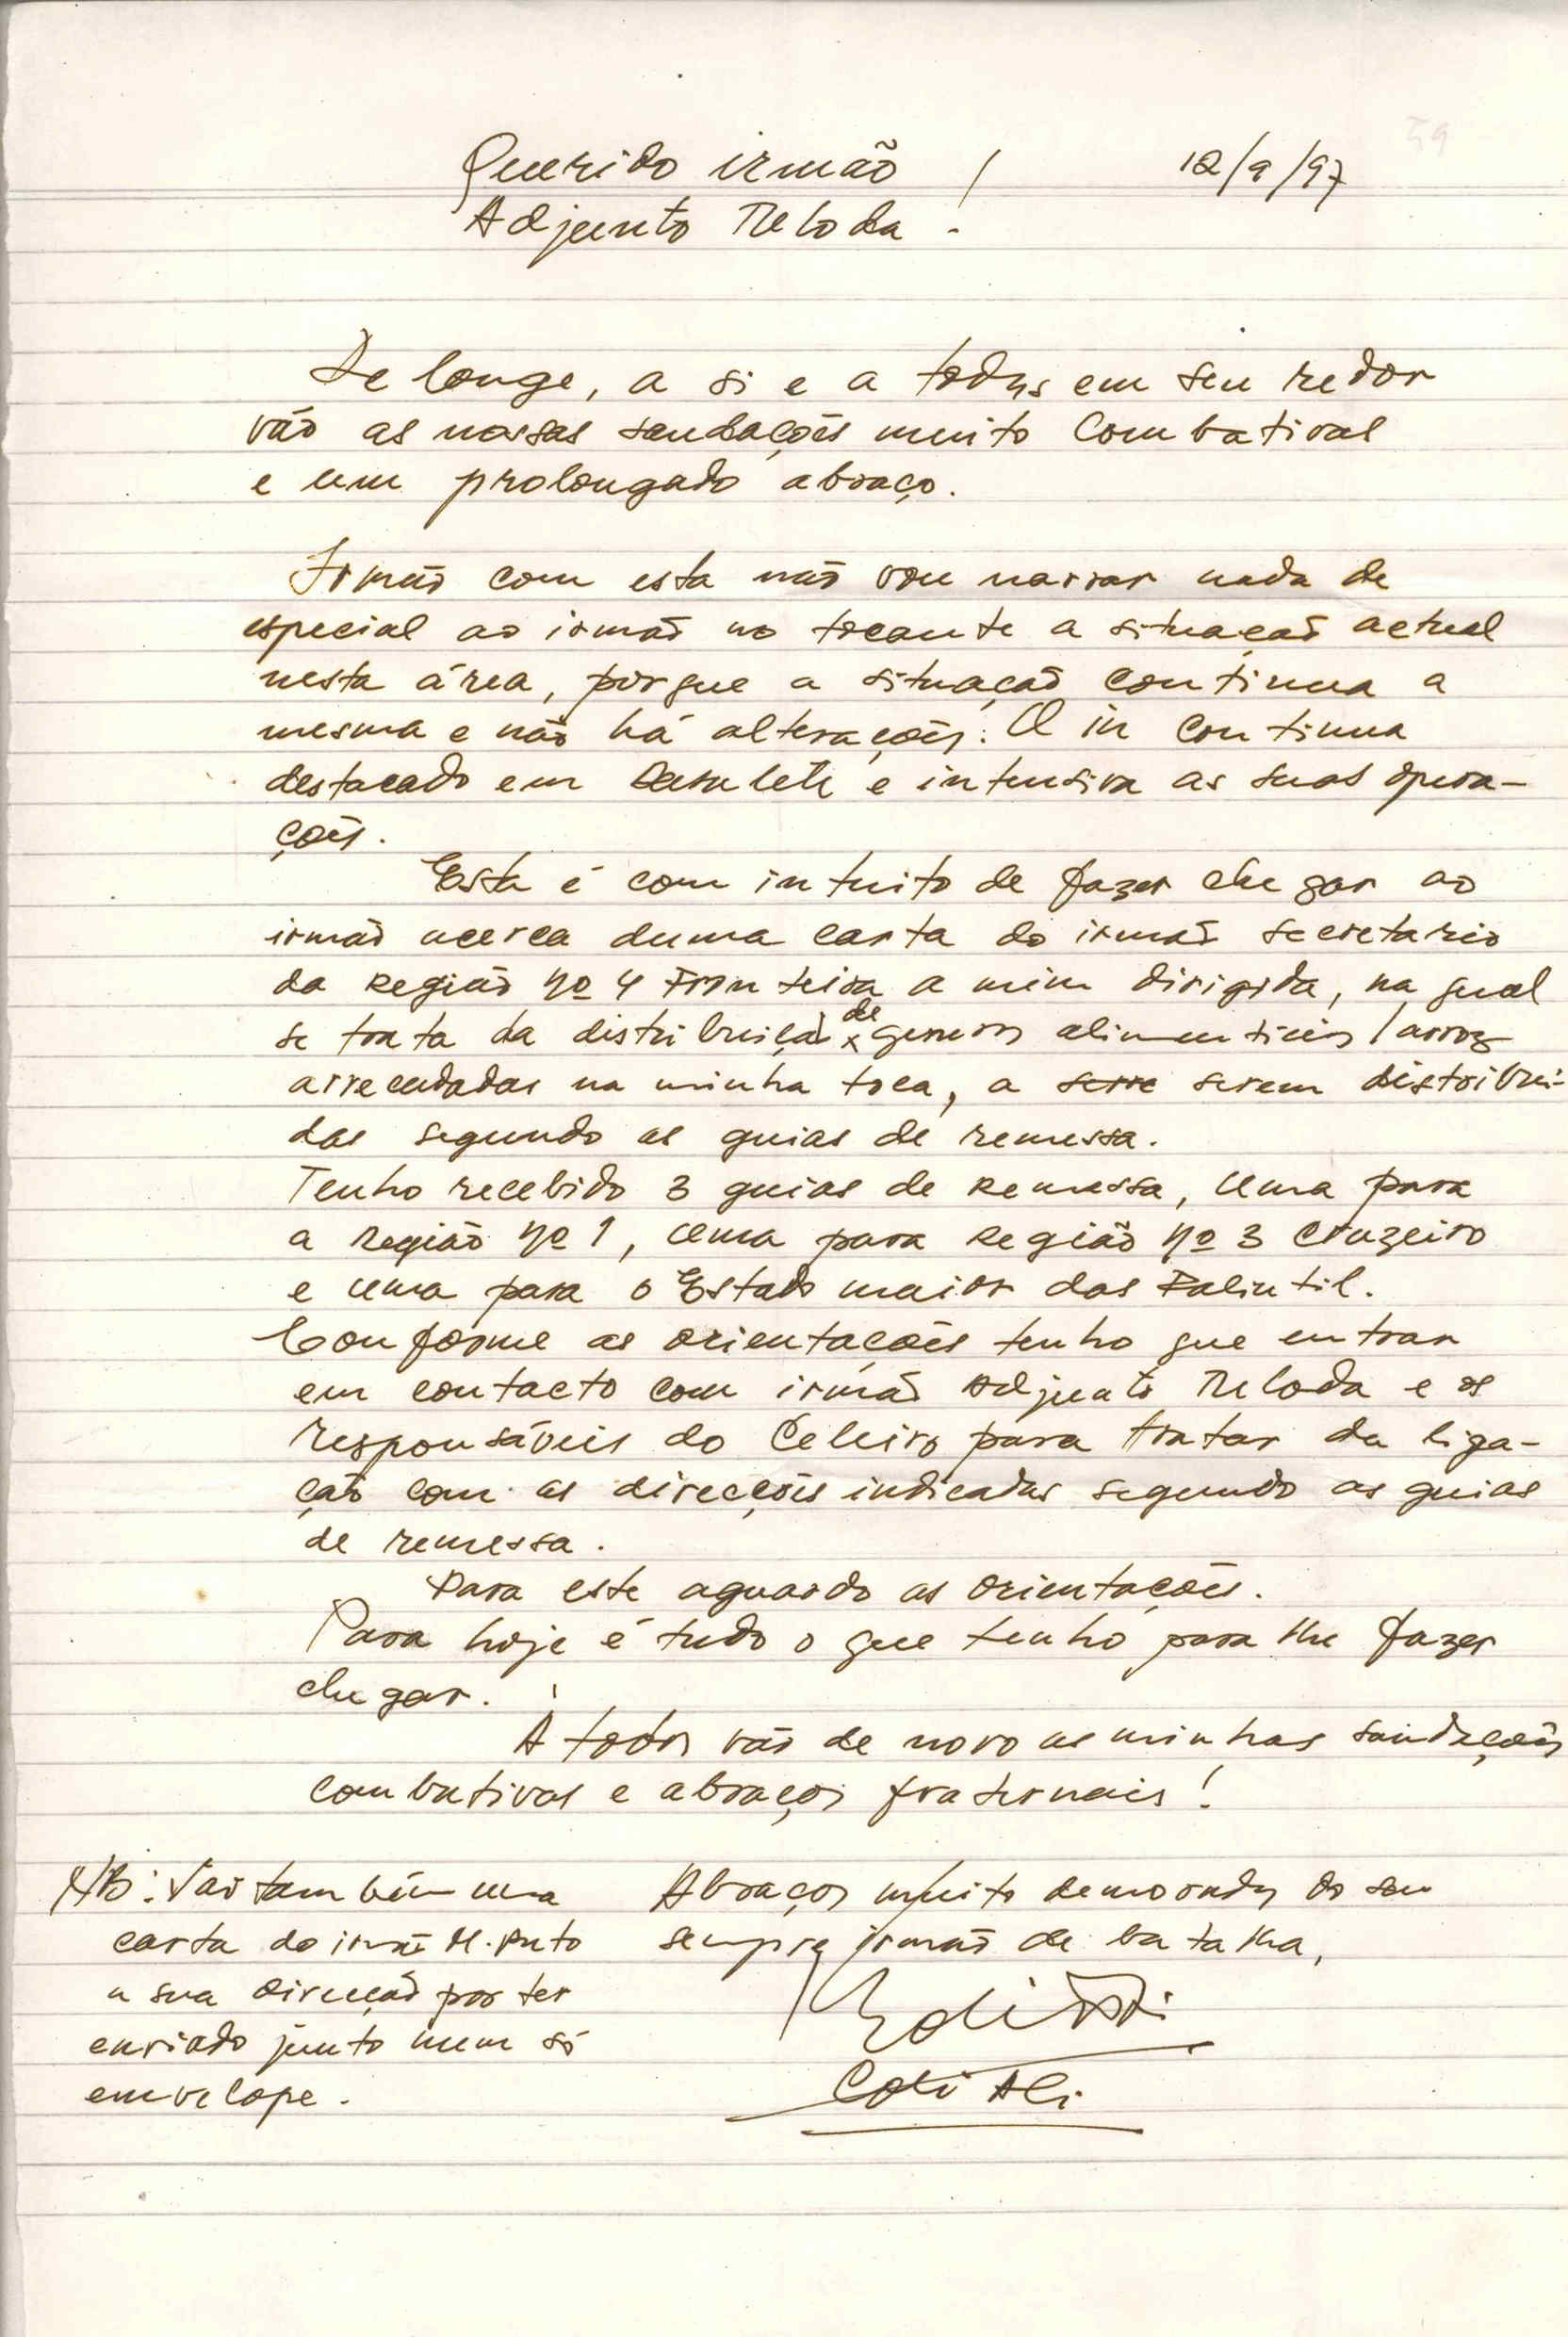 59
Querido irmão ! 12/9/97
Adjunto Reloda !
De longe, a si e a todos em seu redor
vão as nossas saudações muito combativas
e um prolongado abraço.
Irmão com esta não vou narrar nada de
especial ao irmão no tocante a situação actual
nesta área, porque a situação continua a
mesma e não há alterações. O in continua
destacado em e intensiva as suas opera-
ções.
Esta é com intuito de fazer chegar ao
irmão acerca duma carta do irmão secretario
da Região nº 4 Fronteira a mim dirigida, na qual
se trata da distribuição de generos alimenticios / arroz
arrecadadas na minha toca, a serre serem distribui-
das segundo as guias de remessa.
Tenho recebido 3 guias de remessa, uma para
a região nº 1, uma para região nº 3 cruzeiro
e uma para o Estado maior das Falintil.
Conforme as orientações tenho que entrar
em contacto com irmão Adjunto Reloda e os
responsáveis do Celeiro para tratar da liga-
ção com as direcções indicadas segundo as guias
de remessa.
Para este aguardo as orientações.
Para hoje é tudo o que tenho para lhe fazer
chegar.
A todos vão de novo as minhas saudações
combativas e abraços fraternais !
NB: Vai também uma
carta do irmão M. Puto
a sua direcção por ter
enviado junto num só
envelope.
Abraços muito demorados do seu
sempre irmão de batalha,